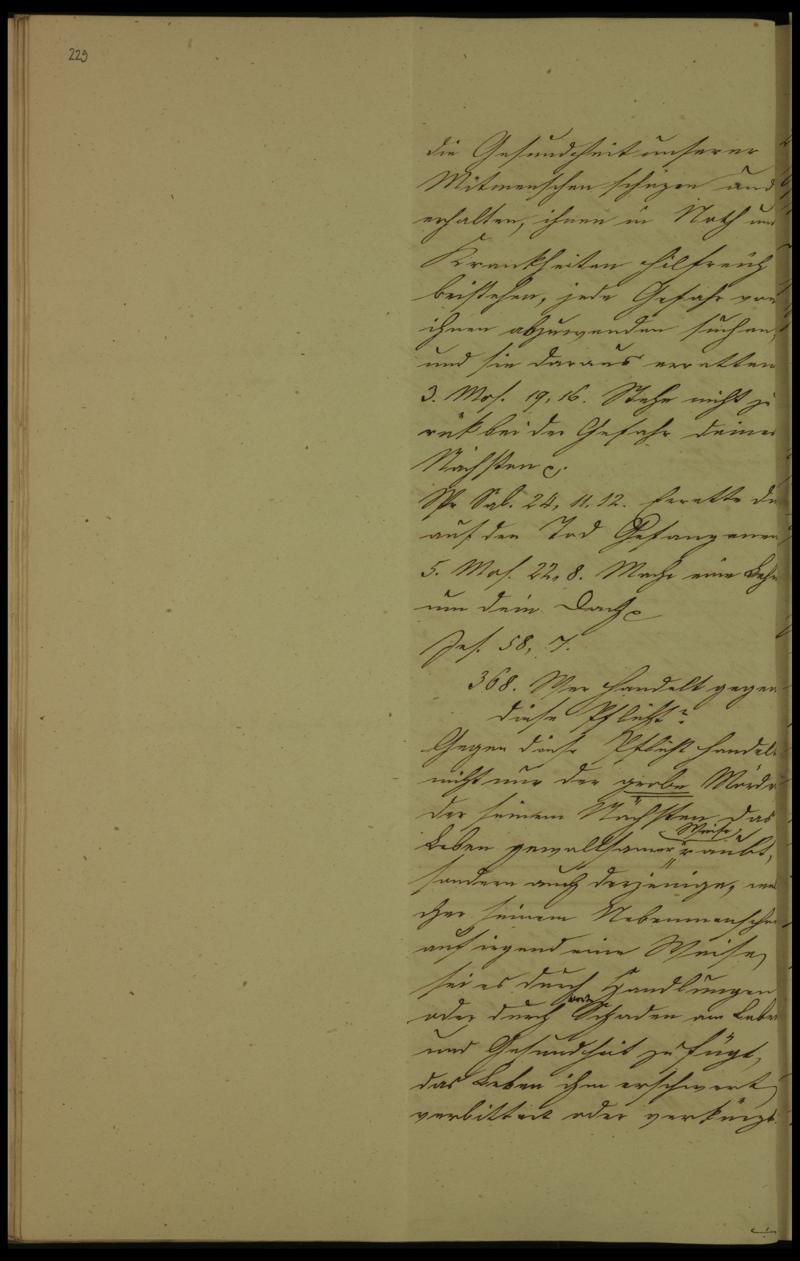 229
die Gesundheit unserer
Mitmenschen schüzen und
erhalten, ihnen in Noth und
Krankheiten hilfreich
beistehen, jede Gefahr von
ihnen abzuwenden suchen,
und sie daraus erretten
3. Mos. 19, 16. Stehe nicht zu
rük bei der Gefahr deines
Nächsten
Spr. Sal. 24, 11, 12. Errette die
auf den Tod Gefangenen
5. Mos. 22, 8. Mache eine Lehn
um dein Dach
Jes. 58, 7.
368. Wer handelt gegen
diese Pflicht?
Gegen diese Pflicht handelt
nicht nur der grobe Mörder
der seinem Nächsten das
Leben gewaltsamer Weise raubt,
sondern auch derjenige, wel
cher seinem Nebenmenschen
auf irgend eine Weise,
sei es durch Handlungen
oder durch Schaden am Leben
und Gesundheit zufügt,
das Leben ihm erschwert,
verbittert oder verkürzt.